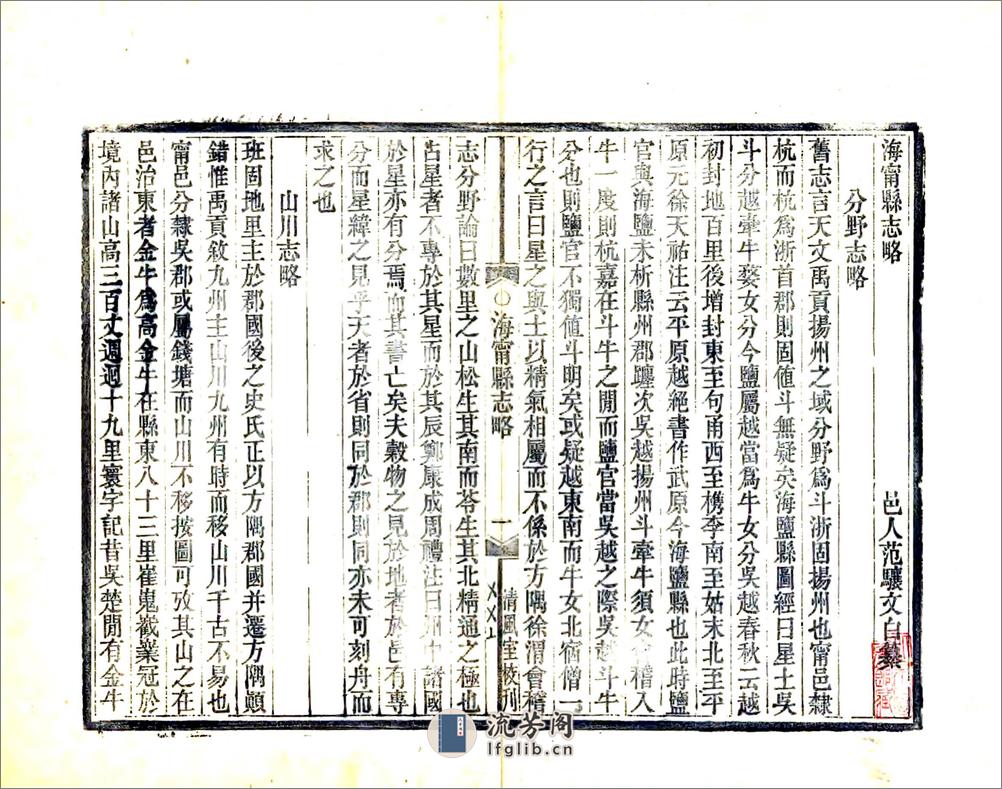 海甯縣志略
邑人范驤文白纂
分野志略
舊志言天文禹貢揚州之域分野爲斗浙固揚州也甯邑隸
杭而杭爲浙首郡則固值斗無疑矣海鹽縣圖經曰星土吳
斗分越牽牛婺女分今鹽屬越當爲牛女分吳越春秋云越
初封地百里後增封東至句甬西至檇李南至姑末北至平
原元徐天祐注云平原越絕書作武原今海鹽縣也此時鹽
官與海鹽未析縣州郡躔次吳越揚州斗牽牛須女會稽入
牛一度則杭嘉在斗牛之閒而鹽官當吳越之際吳越斗牛
分也則鹽官不獨值斗明矣或疑越東南而牛女北宿僧一
行之言曰星之與土以精氣相屬而不係於方隅徐渭會稽
海甯縣志略
一
清風室校刊
志分野論曰數里之山松生其南而苓生其北精通之極也
占星者不專於其星而於其辰鄭康成周禮注曰州中諸國
於星亦有分焉而其書亡矣夫穀物之見於地者於邑有專
分而星緯之見乎天者於省則同於郡則同亦未可刻舟而
求之也
山川志略
班固地里主於郡國後之史氏正以方隅郡國并遷方隅顛
錯惟禹貢敘九州主山川九州有時而移山川千古不易也
甯邑分隸吳郡或屬錢塘而山川不移按圖可攷其山之在
邑治東者金牛爲高金牛在縣東八十三里崔嵬巀嶪冠於
境內諸山高三百丈週迴十九里寰宇記昔吳楚閒有金牛
流芳阁
lfglib.cn